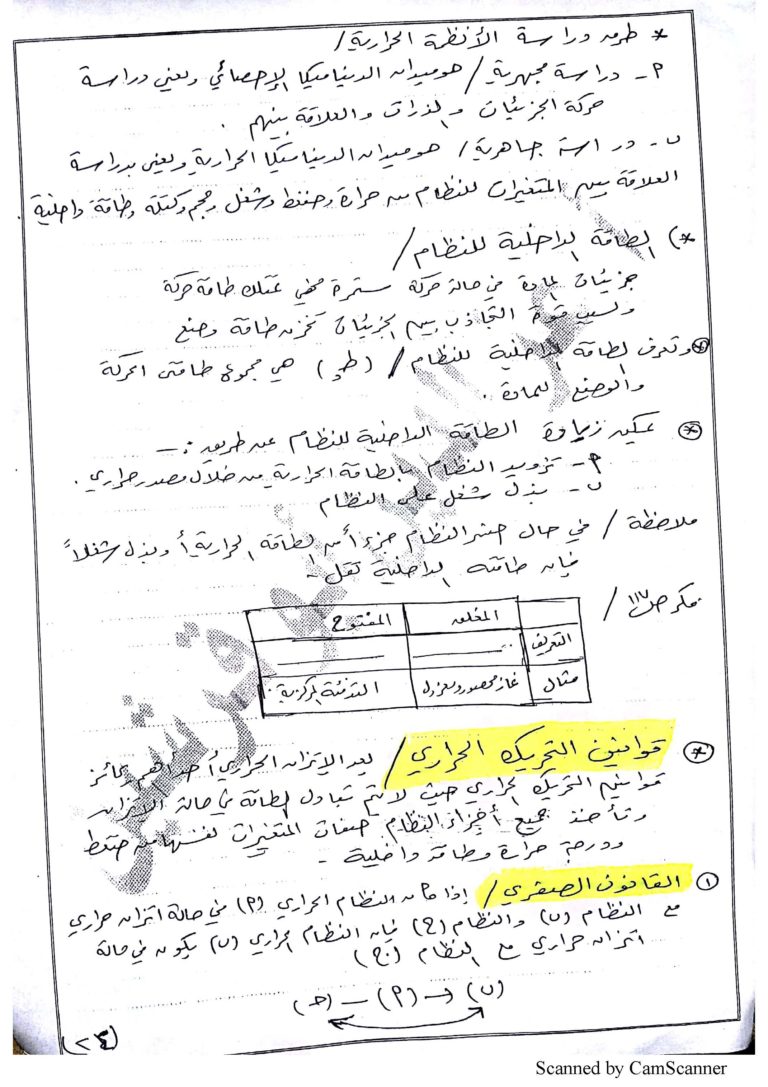 * طرق دراسة الأنظمة الحرارية /
٢- دراسة مجهرية / هو ميدان الديناميكا الإحصائي ويعني دراسة
حركة الجزيئات والذرات والعلاقة بينهم .
ب- دراسة جماهرية / هو ميدان الديناميكا الحرارية ويعني بدراسة
العلاقة بين المتغيرات للنظام من حرارة وضغط وشغل وحجم وكتلة وطاقة داخلية .
*) الطاقة الداخلية للنظام /
جزيئات المادة في حالة حركة مستمرة فهي تمتلك طاقة حركة
وبسبب قوة التجاذب بين الجزيئات تختزن طاقة وضع
* وتعرف الطاقة الداخلية للنظام / (طد) هي مجموع طاقتي الحركة
والوضع للمادة .
* يمكن زيادة الطاقة الداخلية للنظام عن طريق :-
٢- تزويد النظام بالطاقة الحرارية من خلال مصدر حراري .
ب- بذل شغل على النظام
ملاظة / في حال خسر النظام جزءاً من الطاقة الحرارية أو بذل شغلاً
فإن طاقته الداخلية تقل -
فكر ص ١١٧ /
المغلق المفتوح
التعريف
مثال غاز محصور ومعزول التدفئة المركزية .
* قوانين التحريك الحراري / يعد الاتزان الحراري أحد أهم ركائز
قوانين التحريك الحراري حيث لا يتم تبادل الطاقة في حالة الاتزان
وتأخذ جميع أجزاء النظام صفات المتغيرات نفسها من ضغط
ودرجة حرارة وطاقة داخلية -
١ القانون الصفري / إذا كان النظام الحراري (٢) في حالة اتزان حراري
مع النظام (ب) والنظام (ج) فإن النظام الحراري (ب) يكون في حالة
اتزان حراري مع النظام (ج)
(ب) ← (٢) – (ج)
(٢٤)
Scanned by CamScanner